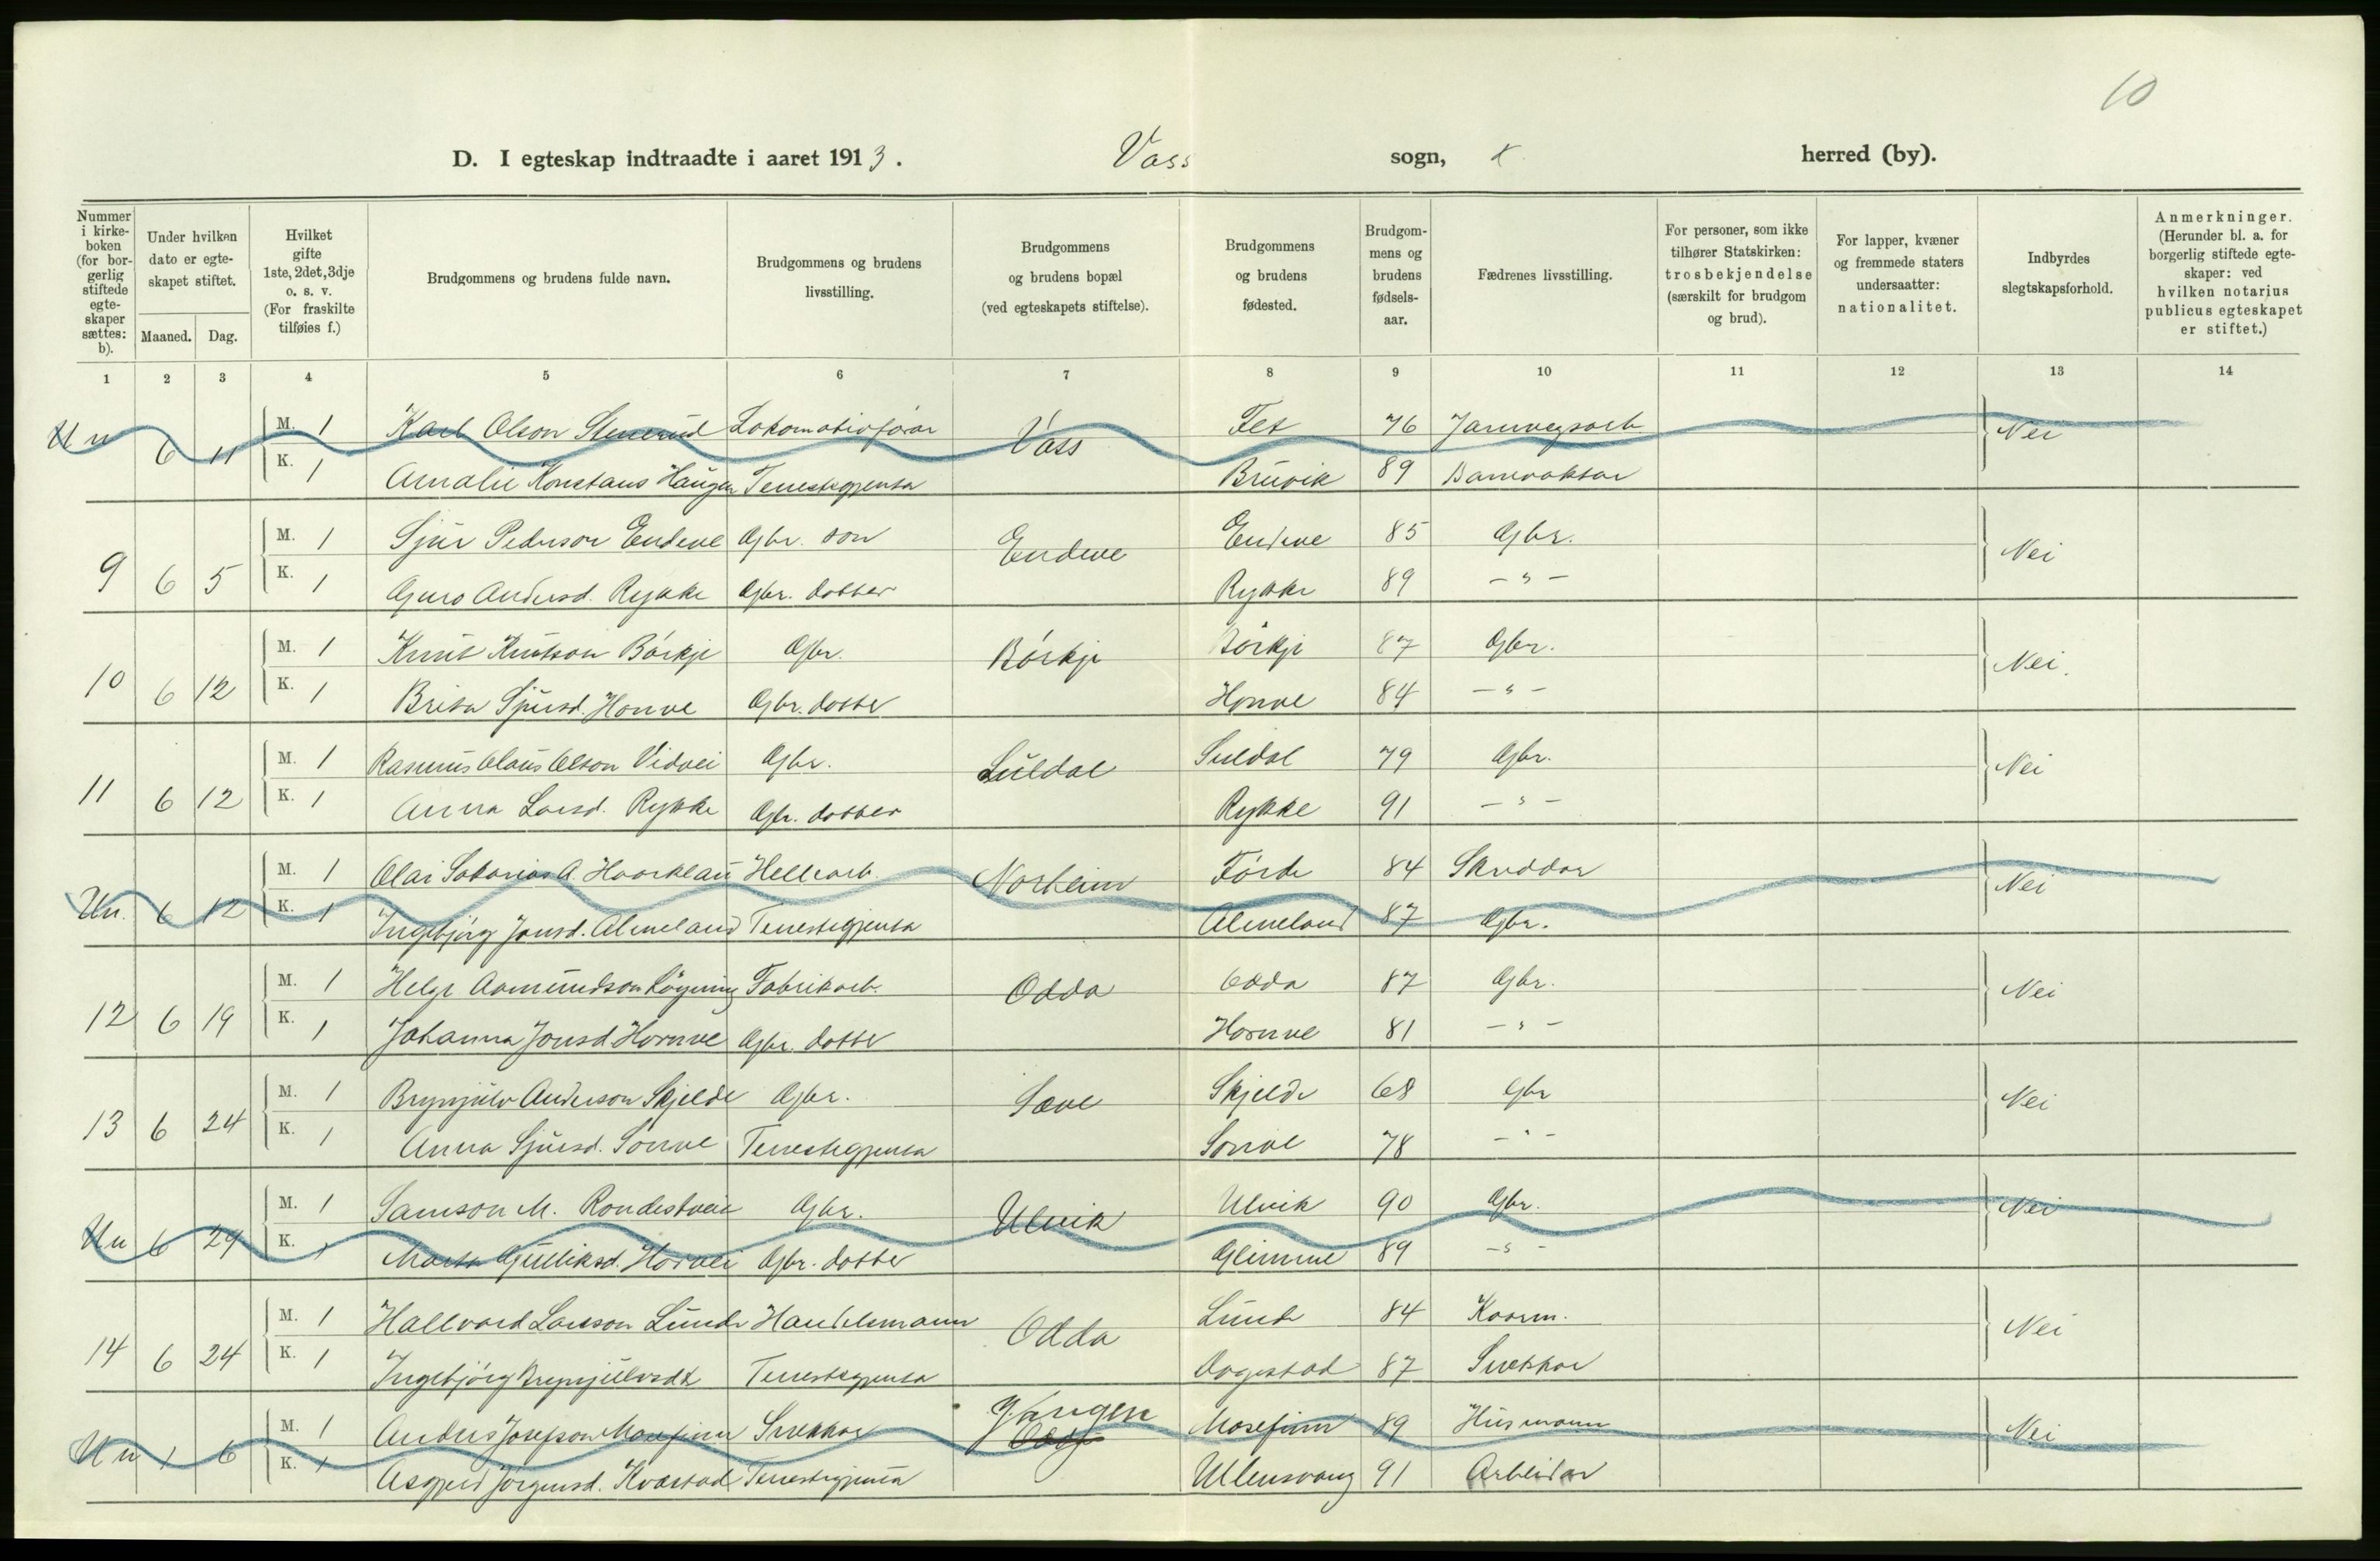 10
D. I egteskap indtraadte i aaret 1913. Vass sogn, x herred (by).
Nummer i kirkeboken (for borgerlig stiftede egteskaper sættes: b).
Under hvilken dato er egteskapet stiftet.
Maaned. Dag.
Hvilket gifte 1ste, 2det, 3dje o. s. v. (For fraskilte tilføies f.)
Brudgommens og brudens fulde navn.
Brudgommens og brudens livsstilling.
Brudgommens og brudens bopæl (ved egteskapets stiftelse).
Brudgommens og brudens fødested.
Brudgommens og brudens fødselsaar.
Fædrenes livsstilling.
For personer, som ikke tilhører Statskirken: trosbekjendelse (særskilt for brudgom og brud).
For lapper, kvæner og fremmede staters undersaatter: nationalitet.
Indbyrdes slegtskapsforhold.
Anmerkninger. (Herunder bl. a. for borgerlig stiftede egteskaper: ved hvilken notarius publicus egteskapet er stiftet.)
1 2 3 4 5 6 7 8 9 10 11 12 13 14
Un 6 11 M. 1 Karl Olson Stenerud Lokomotivførar Vass Fet 76 Jarnvegsarb. Nei
K. 1 Amalie Konstans Haugen Tenestegjenta Bruvik 89 Banevaktar
9 6 5 M. 1 Sjur Pederson Endeve Gbr. son Endeve Endeve 85 Gbr. Nei
K. 1 Guro Andersd. Rykke Gbr. dotter Rykke 89 - " -
10 6 12 M. 1 Knut Knutson Børkje Gbr. Børkje Børkje 87 Gbr. Nei.
K. 1 Brita Sjursd. Honve Gbr. dotter Honve 84 - " -
11 6 12 M. 1 Rasmus Olaus Olson Vidvei Gbr. Suldal Suldal 79 Gbr. Nei
K. 1 Anna Larsd. Rykke Gbr. dotter Rykke 91 - " -
Un. 6 12 M. 1 Olai Sakarias A. Haarklau Hellearb. Norheim Førde 84 Skreddar Nei
K. 1 Ingebjørg Jonsd. Almeland Tenestegjenta Almeland 87 Gbr.
12 6 19 M. 1 Helge Aamundson Løyning Fabrikarb. Odda Odda 87 Gbr. Nei
K. 1 Johanna Jonsd. Hornve Gbr. dotter Hornve 81 - " -
13 6 24 M. 1 Brynjulv Anderson Skjelde Gbr. Sæve Skjelde 68 Gbr Nei
K. 1 Anna Sjursd. Sonve Tenestegjenta Sonve 78 - " -
Un 6 29 M. 1 Samson M. Rondestveit Gbr. Ulvik Ulvik 90 Gbr. Nei
K. 1 Marta Gulliksd. Horvei Gbr. dotter Glimme 89 - " -
14 6 24 M. 1 Hallvard Larsson Lunde Handelsmann Odda Lunde 84 Kaarm. Nei
K. 1 Ingebjørg Brynjulvsdt Tenestegjenta Dagestad 87 Snekkar
Un 1 6 M. 1 Anders Josefson Mosefinn Snekkar Vangen Mosefinn 89 Husmann Nei
K. 1 Asgjerd Jørgensd. Kvæstad Tenestegjenta Ullensvang 91 Arbeidar